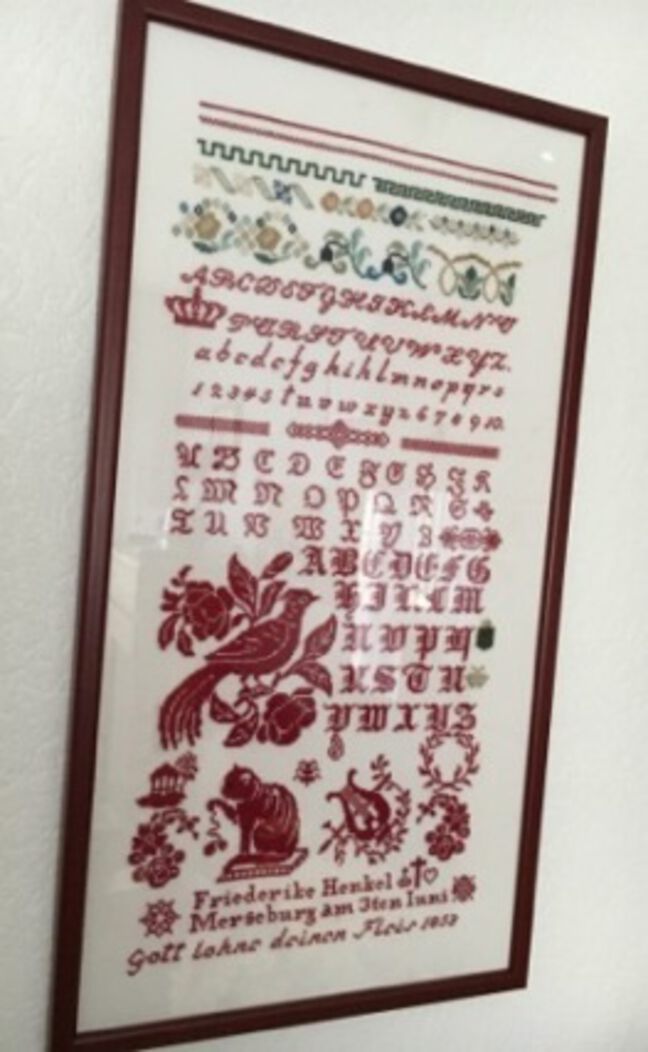 A B C D E F G H I K L M N O
P Q R S T U V W X Y Z.
a b c d e f g h i k l m n o p q r s
1 2 3 4 5 t u v w x y z 6 7 8 9 10.
A B C D E F G H I K
L M N O P Q R S
T U V W X Y Z
A B C D E F G
H I K L M
N O P Q
R S T U
V W X Y Z
Friederike Henkel
Merseburg am 3ten Iuni
Gott lohne deinen Fleis